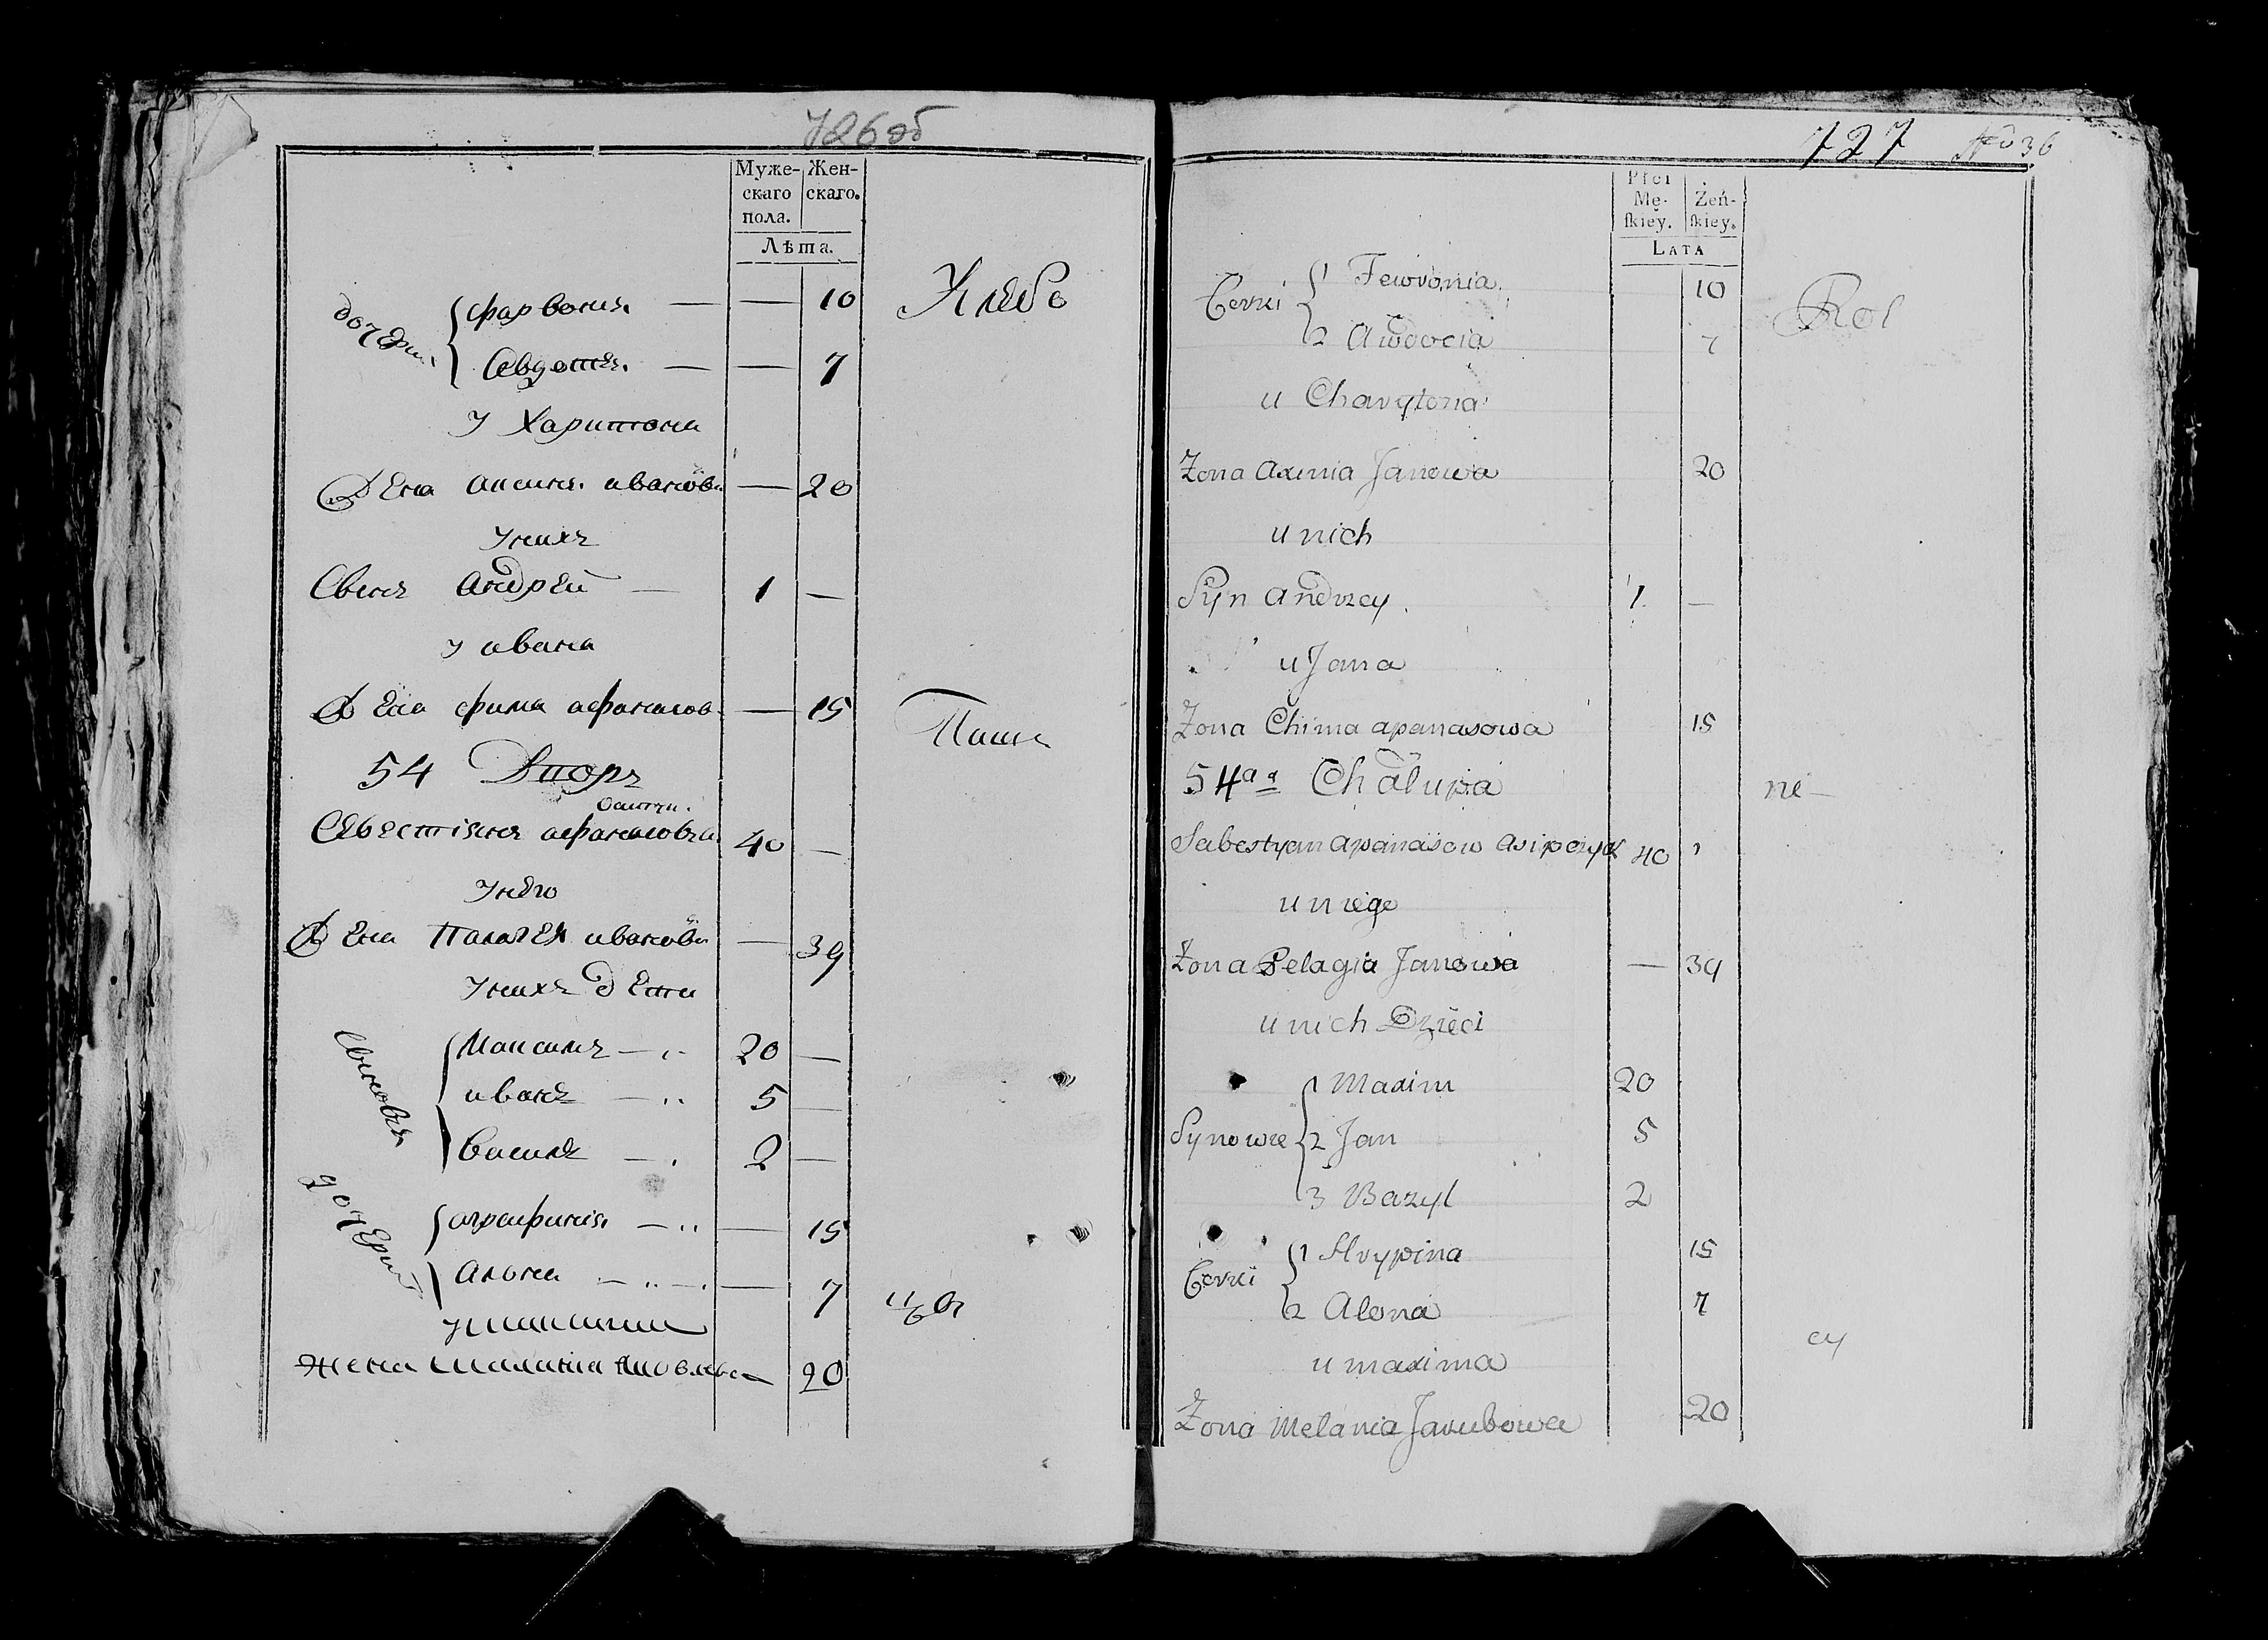 726об
Муже- Жен-
скаго скаго.
пола.
Лѣта.
дочери фарвония — — 10 Хлебо
Овдотя — — 7
у Харитона
Жена аксиня ивановa — 20
у нихъ
Сынъ андрей — 1 —
у ивана
Жена фима афанасов — 15 Паше
54 Дворъ
осипчи.
Севестіянъ афанасовъ 40 —
у него
Жена Палагея иванова — 39
у нихъ дети
Сыновя Максимъ — 20 —
иванъ — 5 —
василь — 2 —
дочери аграфинія — — 15
Алона — — 7
у максима
жена маланиа яковлева — 20
727 No 36
Płci
Mę- Żeń-
ſkiey. ſkiey.
LATA
Corki 1 Fewronia 10 Rol
2 Awdocia 7
u Charytona
Zona Axinia Janowa 20
u nich
Syn Andrzey. 1. —
u Jana
Zona Chima apanasowa 15
54a Chalupa ni—
Sabestyan apanasow asipczyk 40
u niego
Zona Pelagia Janowa — 39
u nich Dzieci
Synowie 1 Maxim 20
2 Jan 5
3 Bazyl 2
Corki 1 Hrypina 15
2 Alona 7
u maxima cy
Zona Melania Jakubowa 20